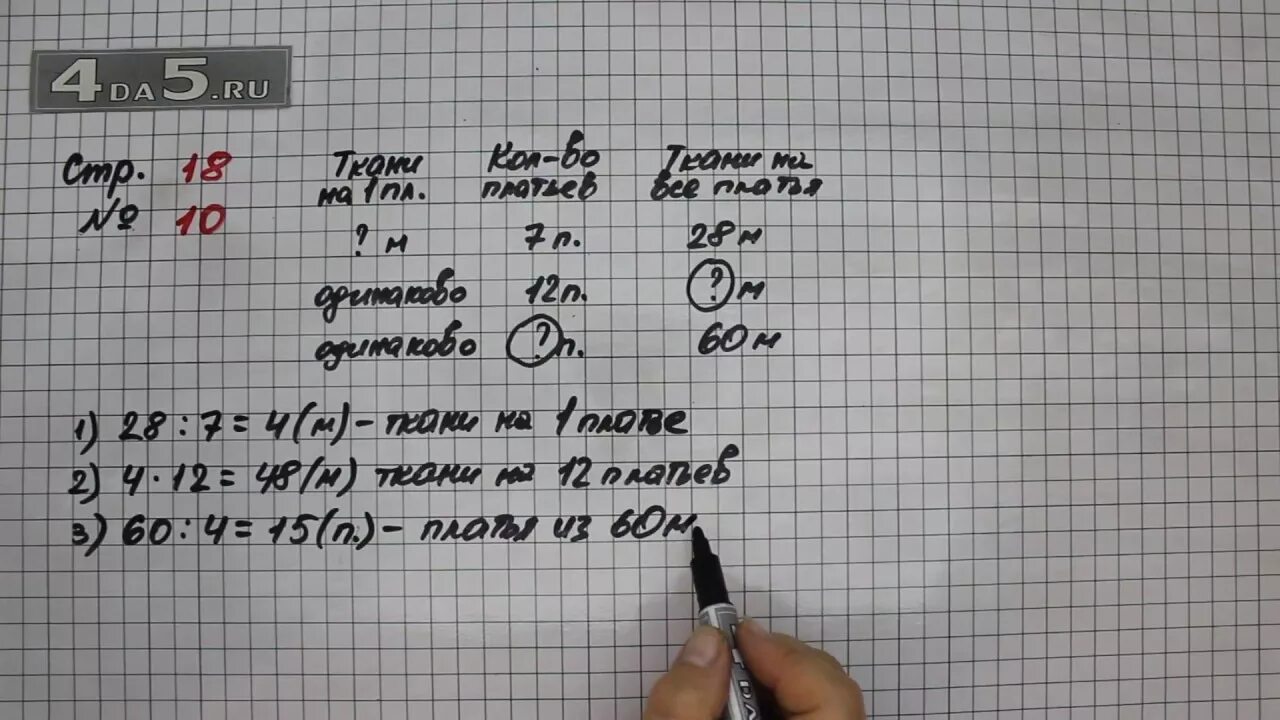 4DA5.RU
Стр. 18
№ 10
Ткани на 1 пл. Кол-во платьев Ткани на все платья
? м 7 п. 28 м
одинаково 12 п. ? м
одинаково ? п. 60 м
1) 28 : 7 = 4 (м) - ткани на 1 платье
2) 4 · 12 = 48 (м) ткани на 12 платьев
3) 60 : 4 = 15 (п.) - платья из 60 м